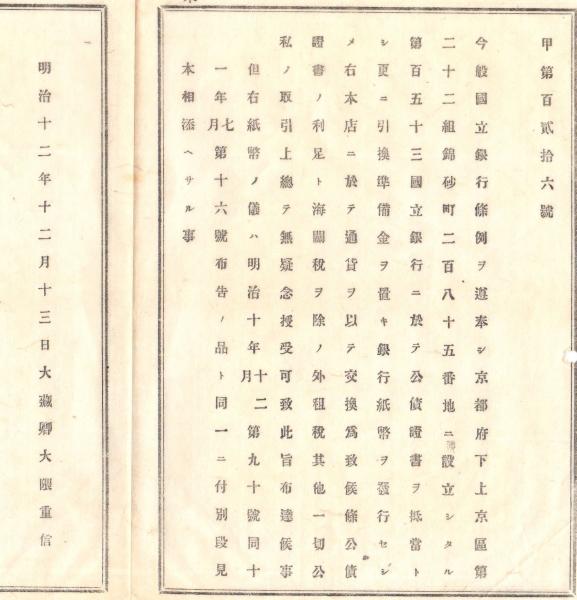 甲第百貳拾六號
今般國立銀行條例ヲ遵奉シ京都府下上京區第
二十二組錦砂町二百八十五番地ニ設立シタル
第百五十三國立銀行ニ於テ公債證書ヲ抵當ト
シ更ニ引換準備金ヲ置キ銀行紙幣ヲ發行セシ
メ右本店ニ於テ通貨ヲ以テ交換爲致候條公債
證書ノ利足ト海關稅ヲ除ノ外租稅其他一切公
私ノ取引上總テ無疑念授受可致此旨布達候事
但右紙幣ノ儀ハ明治十年十二月第九十號同十
一年七月第十六號布告ノ品ト同一ニ付別段見
本相添ヘサル事
明治十二年十二月十三日大藏卿大隈重信